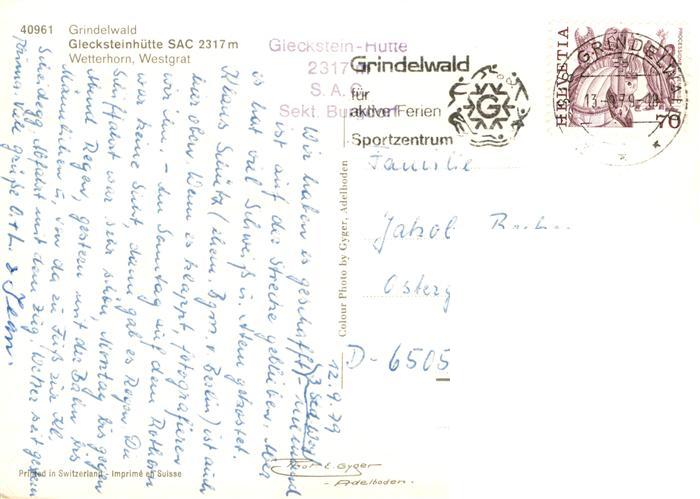 40961 Grindelwald
Glecksteinhütte SAC 2317 m
Wetterhorn, Westgrat
Gleckstein-Hütte
2317 m
S. A. C.
Sekt. Burgdorf
Grindelwald
für
aktive Ferien
Sportzentrum
G
HELVETIA
70
GRINDELWALD
Familie
Jakob
Osterg
D-6505
Colour Photo by Gyger, Adelboden
12.9.79
Wir haben es geschafft,
ist auf der Strecke geblieben. Aber
es hat viel Schweiß u. Atem gekostet.
Klaus Schütz (ehem. Bgm. v. Berlin) ist auch
hier oben. Wenn es klappt, fotografieren
wir ihn. – Am Sonntag auf dem Rothorn
war keine Sicht, dann gab es Regen. Die
Schiffahrt war sehr schön, Montag bis gegen
Abend Regen, gestern mit der Bahn bis
Männlichen u. von da zu Fuß zur Kl.
Scheidegg. Abfahrt mit dem Zug. Wetter seit gestern
prima. Viele Grüße
Printed in Switzerland - Imprimé en Suisse
Gyger
- Adelboden.